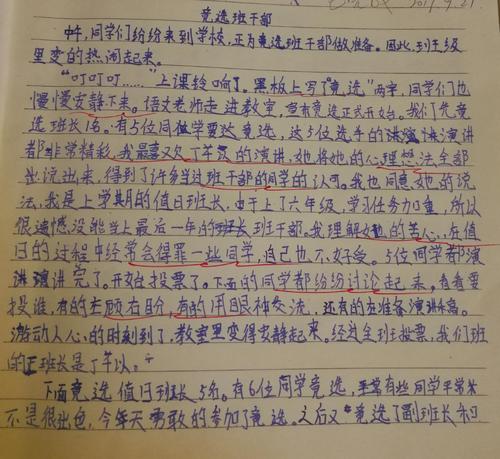 竞选班干部
中午,同学们纷纷来到学校,正为竞选班干部做准备。因此,班级
里变的热闹起来。
“叮叮叮……”上课铃响了。黑板上写了“竞选”两字,同学们也
慢慢安静下来。语文老师走进教室,宣布竞选正式开始。我们先竞
选班长1名。有5位同学要竞选,这5位选手的演讲
都非常精彩,我最喜欢的演讲,她将她的心理想法全部
出说出来,得到了许多当过班干部的同学的认可。我也同意她的说
法,我是上学期的值日班长,由于上了六年级,学习任务加重,所以
很遗憾没能当上最后一年的班干部。我理解她的苦心,在值
日的过程中经常会得罪一些同学,自己也不好受。5位同学都演
讲完了。开始投票了。下面的同学都纷纷讨论起来。有看要
投谁,有的左顾右盼,有的用眼神交流,还有的在准备演讲稿。
激动人心的时刻到了,教室里变得安静起来,经过全班投票,我们班
的正班长是丁以。
下面竞选值日班长5名。有6位同学竞选,平常有些同学平常
不是很出色,今天勇敢的参加了竞选。之后又竞选了副班长和